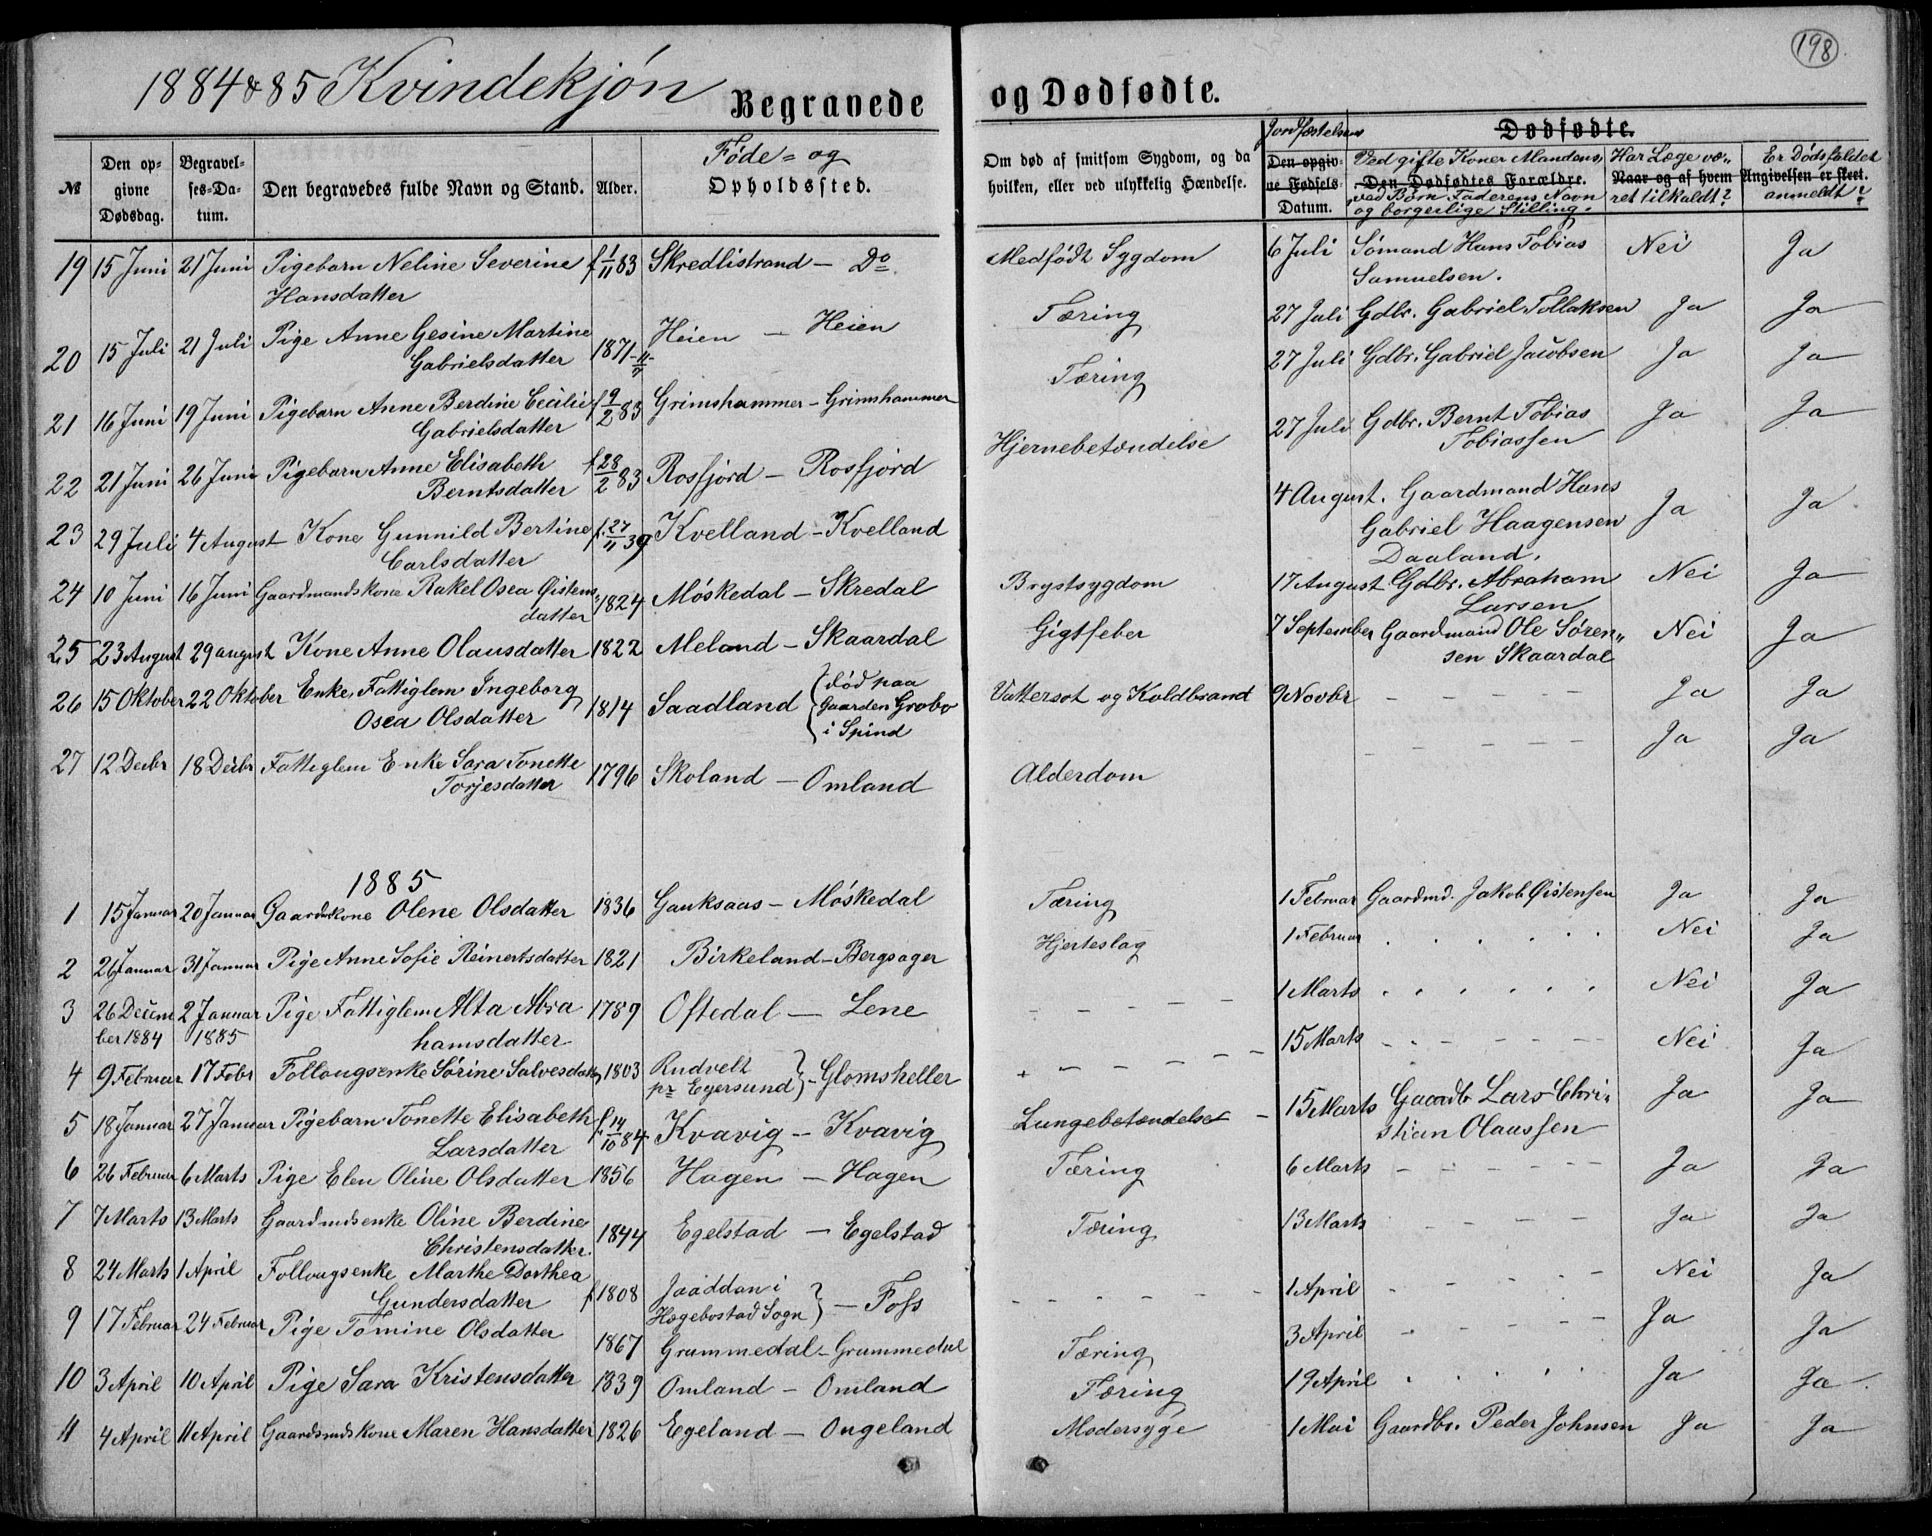 198
1884 & 85 Kvindekjøn Begravede og Dødfødte.
№ | Den opgivne Dødsdag. | Begravelses-Datum. | Den begravedes fulde Navn og Stand. | Alder. | Føde- og Opholdssted. | Om død af smitsom Sygdom, og da hvilken, eller ved ulykkelig Hændelse. | Jordfæstelsens Den opgivne Fødsels-Datum. | Dødfødte. Ved gifte Koner Mandens, Den Dødfødtes Forældre. ved Børn Faderens Navn og borgerlige Stilling. | Har Læge væ- Naar og af hvem ret tilkaldt? | Er Dødsfaldet Angivelsen er skeet. anmeldt?
19 | 15 Juni | 21 Juni | Pigebarn Neline Severine Hansdatter | f 1/11 83 | Skredlistrand - Do | Medfødt Sygdom | 6 Juli | Sømand Hans Tobias Samuelsen. | Nei | Ja
20 | 15 Juli | 21 Juli | Pige Anne Gesine Martine Gabrielsdatter | 1871 | Heien - Heien | Tæring | 27 Juli | Gdbr. Gabriel Tollaksen | Ja | Ja
21 | 16 Juni | 19 Juni | Pigebarn Anne Berdine Cecilie Gabrielsdatter | f 9/2 83 | Grimshammer - Grimshammer | Tæring | 27 Juli | Gdbr. Gabriel Jacobsen | Ja | Ja
22 | 21 Juni | 26 Juni | Pigebarn Anne Elisabeth Berntsdatter | f 28/2 83 | Rosfjord - Rosfjord | Hjernebetændelse | 27 Juli | Gdbr. Bernt Tobias Tobiassen | Ja | Ja
23 | 29 Juli | 4 August | Kone Gunnild Bertine Carlsdatter | f. 27/11 39 | Kvelland - Kvelland | 4 August. | Gaardmand Hans Gabriel Haagensen Daaland. | Ja | Ja
24 | 10 Juni | 16 Juni | Gaardmandskone Rakel Osea Østensdatter | 1824 | Møskedal - Skredal | Brystsygdom | 17 August | Gdbr. Abraham Larsen | Nei | Ja
25 | 23 August | 29 august | Kone Anne Olausdatter | 1822 | Meland - Skaardal | Gigtfeber | 7 September | Gaardmand Ole Sørensen Skaardal | Nei | Ja
26 | 15 Oktober | 22 Oktober | Enke, Fattiglem Ingeborg Osea Olsdatter | 1814 | Saadland { død paa Gaarden Grobo i Spind | Vattersot og Koldbrand | 9 Novbr | - - - - - | Ja | Ja
27 | 12 Decbr | 18 Decbr | Fattiglem Enke Sara Tonette Torjesdatter | 1796 | Skoland - Omland | Alderdom | - - - - - | Ja | Ja
1885
1 | 15 Januar | 20 Januar | Gaardmkone Olene Olsdatter | 1836 | Gauksaas - Møskedal | Tæring | 1 Februar | Gaardmd. Jakob Østensen | Ja | Ja
2 | 26 Januar | 31 Januar | Pige Anne Sofie Reinertsdatter | 1821 | Birkeland - Bergsager | Hjerteslag | 1 Februar | . . . . . | Nei | Ja
3 | 26 December 1884 | 2 Januar 1885 | Pige Fattiglem Alta Abrahamsdatter | 1789 | Oftedal - Lene | - - - - | 1 Marts | . . . . . | Nei | Ja
4 | 9 Februar | 17 Febr | Follougsenke Sørine Salvesdatt | 1803 | Rudvelt pr Egersund } - Glomsheller | - - - - | 15 Marts | - - - - - | Nei | Ja
5 | 18 Januar | 27 Januar | Pigebarn Tonette Elisabeth Larsdatter | f. 14/10 84 | Kvavig - Kvavig | Lungebetændelse - | 15 Marts | Gaardb Lars Christian Olaussen | Ja | Ja
6 | 26 Februar | 6 Marts | Pige Elen Oline Olsdatter | 1856 | Hagen - Hagen | Tæring | 6 Marts | - - - - - | Ja | Ja
7 | 7 Marts | 13 Marts | Gaardmdsenke Oline Berdine Christensdatter. | 1844 | Egelstad - Egelstad | Tæring | 13 Marts | - - - - - | Ja | Ja
8 | 24 Marts | 1 April | Follougsenke Marthe Dorthea Gundersdatter | f 1808 | Jaaddan i Hægebostad Sogn } - Foss | - - - - - | 1 April | . - - - | Nei | Ja
9 | 17 Februar | 24 Februar | Pige Tomine Olsdatter | 1867 | Grummedal - Grummedal | Tæring | 3 April | - - - - - | Ja | Ja
10 | 3 April | 10 April | Pige Sara Kristensdatter | 1839 | Omland - Omland | Tæring | 19 April | . . . . . | Ja | Ja.
11 | 4 April | 11 April | Gaardsmdskone Maren Hansdatter | 1826 | Egeland - Ougeland | Modersyge | 1 Mai | Gaardbr. Peder Johnsen | Ja | Ja